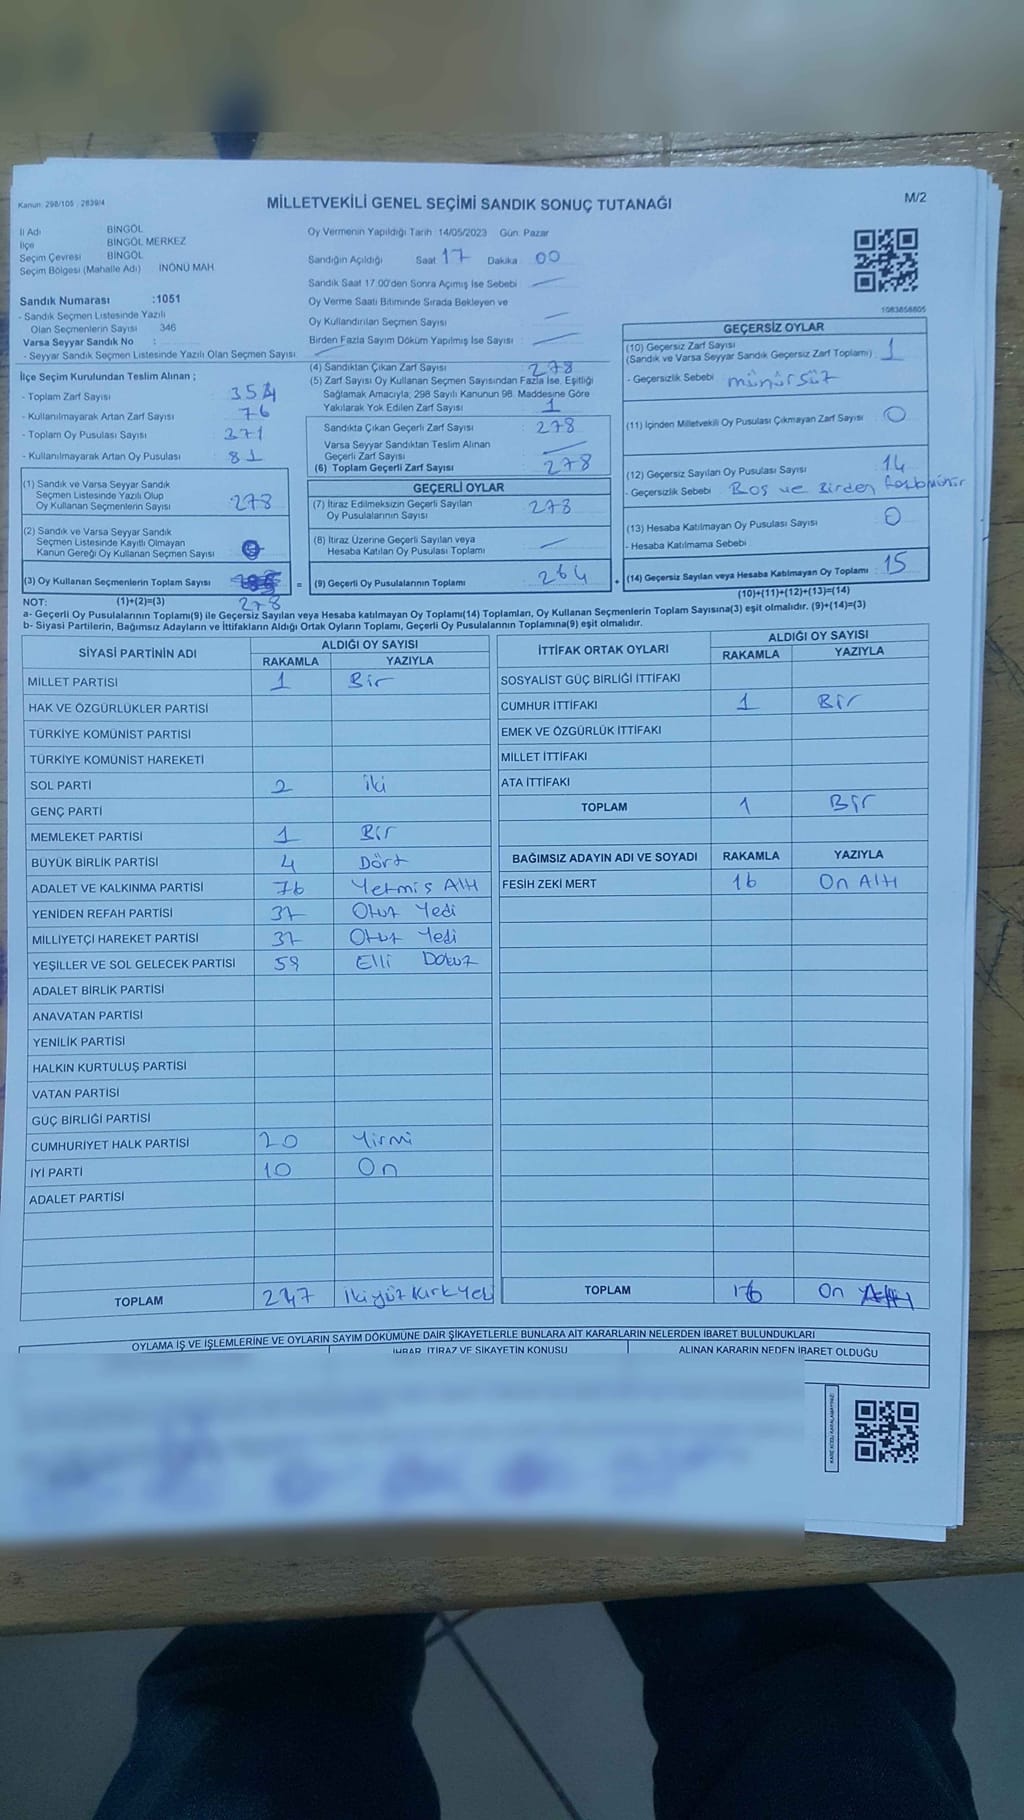 Kanun: 298/105 , 2839/4
MİLLETVEKİLİ GENEL SEÇİMİ SANDIK SONUÇ TUTANAĞI
M/2
İl Adı BİNGÖL
İlçe BİNGÖL MERKEZ
Seçim Çevresi BİNGÖL
Seçim Bölgesi (Mahalle Adı) İNÖNÜ MAH
Sandık Numarası :1051
- Sandık Seçmen Listesinde Yazılı
Olan Seçmenlerin Sayısı 346
Varsa Seyyar Sandık No :
- Seyyar Sandık Seçmen Listesinde Yazılı Olan Seçmen Sayısı
İlçe Seçim Kurulundan Teslim Alınan ;
- Toplam Zarf Sayısı : 354
- Kullanılmayarak Artan Zarf Sayısı : 76
- Toplam Oy Pusulası Sayısı : 371
- Kullanılmayarak Artan Oy Pusulası : 81
(1) Sandık ve Varsa Seyyar Sandık
Seçmen Listesinde Yazılı Olup
Oy Kullanan Seçmenlerin Sayısı : 278
(2) Sandık ve Varsa Seyyar Sandık
Seçmen Listesinde Kayıtlı Olmayan
Kanun Gereği Oy Kullanan Seçmen Sayısı :
(3) Oy Kullanan Seçmenlerin Toplam Sayısı =
(1)+(2)=(3) 278
Oy Vermenin Yapıldığı Tarih :14/05/2023 Gün: Pazar
Sandığın Açıldığı Saat 17 Dakika 00
Sandık Saat 17.00'den Sonra Açımış İse Sebebi :
Oy Verme Saati Bitiminde Sırada Bekleyen ve
Oy Kullandırılan Seçmen Sayısı :
Birden Fazla Sayım Döküm Yapılmış İse Sayısı :
(4) Sandıktan Çıkan Zarf Sayısı : 278
(5) Zarf Sayısı Oy Kullanan Seçmen Sayısından Fazla İse, Eşitliği
Sağlamak Amacıyla, 298 Sayılı Kanunun 98. Maddesine Göre
Yakılarak Yok Edilen Zarf Sayısı : 1
Sandıkta Çıkan Geçerli Zarf Sayısı : 278
Varsa Seyyar Sandıktan Teslim Alınan
Geçerli Zarf Sayısı :
(6) Toplam Geçerli Zarf Sayısı : 278
GEÇERLİ OYLAR
(7) İtiraz Edilmeksizin Geçerli Sayılan
Oy Pusulalarının Sayısı : 273
(8) İtiraz Üzerine Geçerli Sayılan veya
Hesaba Katılan Oy Pusulası Toplamı :
(9) Geçerli Oy Pusulalarının Toplamı : 264
1083858605
GEÇERSİZ OYLAR
(10) Geçersiz Zarf Sayısı
(Sandık ve Varsa Seyyar Sandık Geçersiz Zarf Toplamı) : 1
- Geçersizlik Sebebi : mühürsüz
(11) İçinden Milletvekili Oy Pusulası Çıkmayan Zarf Sayısı : 0
(12) Geçersiz Sayılan Oy Pusulası Sayısı : 14
- Geçersizlik Sebebi : Boş ve Birden
(13) Hesaba Katılmayan Oy Pusulası Sayısı : 0
- Hesaba Katılmama Sebebi :
(14) Geçersiz Sayılan veya Hesaba Katılmayan Oy Toplamı : 15
(10)+(11)+(12)+(13)=(14)
NOT:
a- Geçerli Oy Pusulalarının Toplamı(9) ile Geçersiz Sayılan veya Hesaba katılmayan Oy Toplamı(14) Toplamları, Oy Kullanan Seçmenlerin Toplam Sayısına(3) eşit olmalıdır. (9)+(14)=(3)
b- Siyasi Partilerin, Bağımsız Adayların ve İttifakların Aldığı Ortak Oyların Toplamı, Geçerli Oy Pusulalarının Toplamına(9) eşit olmalıdır.
SİYASİ PARTİNİN ADI ALDIĞI OY SAYISI
RAKAMLA YAZIYLA
MİLLET PARTİSİ 1 Bir
HAK VE ÖZGÜRLÜKLER PARTİSİ
TÜRKİYE KOMÜNİST PARTİSİ
TÜRKİYE KOMÜNİST HAREKETİ
SOL PARTİ 2 iki
GENÇ PARTİ
MEMLEKET PARTİSİ 1 Bir
BÜYÜK BİRLİK PARTİSİ 4 Dört
ADALET VE KALKINMA PARTİSİ 76 Yetmiş Altı
YENİDEN REFAH PARTİSİ 37 Otuz Yedi
MİLLİYETÇİ HAREKET PARTİSİ 37 Otuz Yedi
YEŞİLLER VE SOL GELECEK PARTİSİ 59 Elli Dokuz
ADALET BİRLİK PARTİSİ
ANAVATAN PARTİSİ
YENİLİK PARTİSİ
HALKIN KURTULUŞ PARTİSİ
VATAN PARTİSİ
GÜÇ BİRLİĞİ PARTİSİ
CUMHURİYET HALK PARTİSİ 20 Yirmi
İYİ PARTİ 10 On
ADALET PARTİSİ
TOPLAM 247 İkiyüz Kırk Yedi
İTTİFAK ORTAK OYLARI ALDIĞI OY SAYISI
RAKAMLA YAZIYLA
SOSYALİST GÜÇ BİRLİĞİ İTTİFAKI
CUMHUR İTTİFAKI 1 Bir
EMEK VE ÖZGÜRLÜK İTTİFAKI
MİLLET İTTİFAKI
ATA İTTİFAKI
TOPLAM 1 Bir
BAĞIMSIZ ADAYIN ADI VE SOYADI RAKAMLA YAZIYLA
FESİH ZEKİ MERT 16 On Altı
TOPLAM 16 On Altı
OYLAMA İŞ VE İŞLEMLERİNE VE OYLARIN SAYIM DÖKÜMÜNE DAİR ŞİKAYETLERLE BUNLARA AİT KARARLARIN NELERDEN İBARET BULUNDUKLARI
İHBAR, İTİRAZ VE ŞİKAYETİN KONUSU
ALINAN KARARIN NEDEN İBARET OLDUĞU
KARE KODU KARALAMAYINIZ!